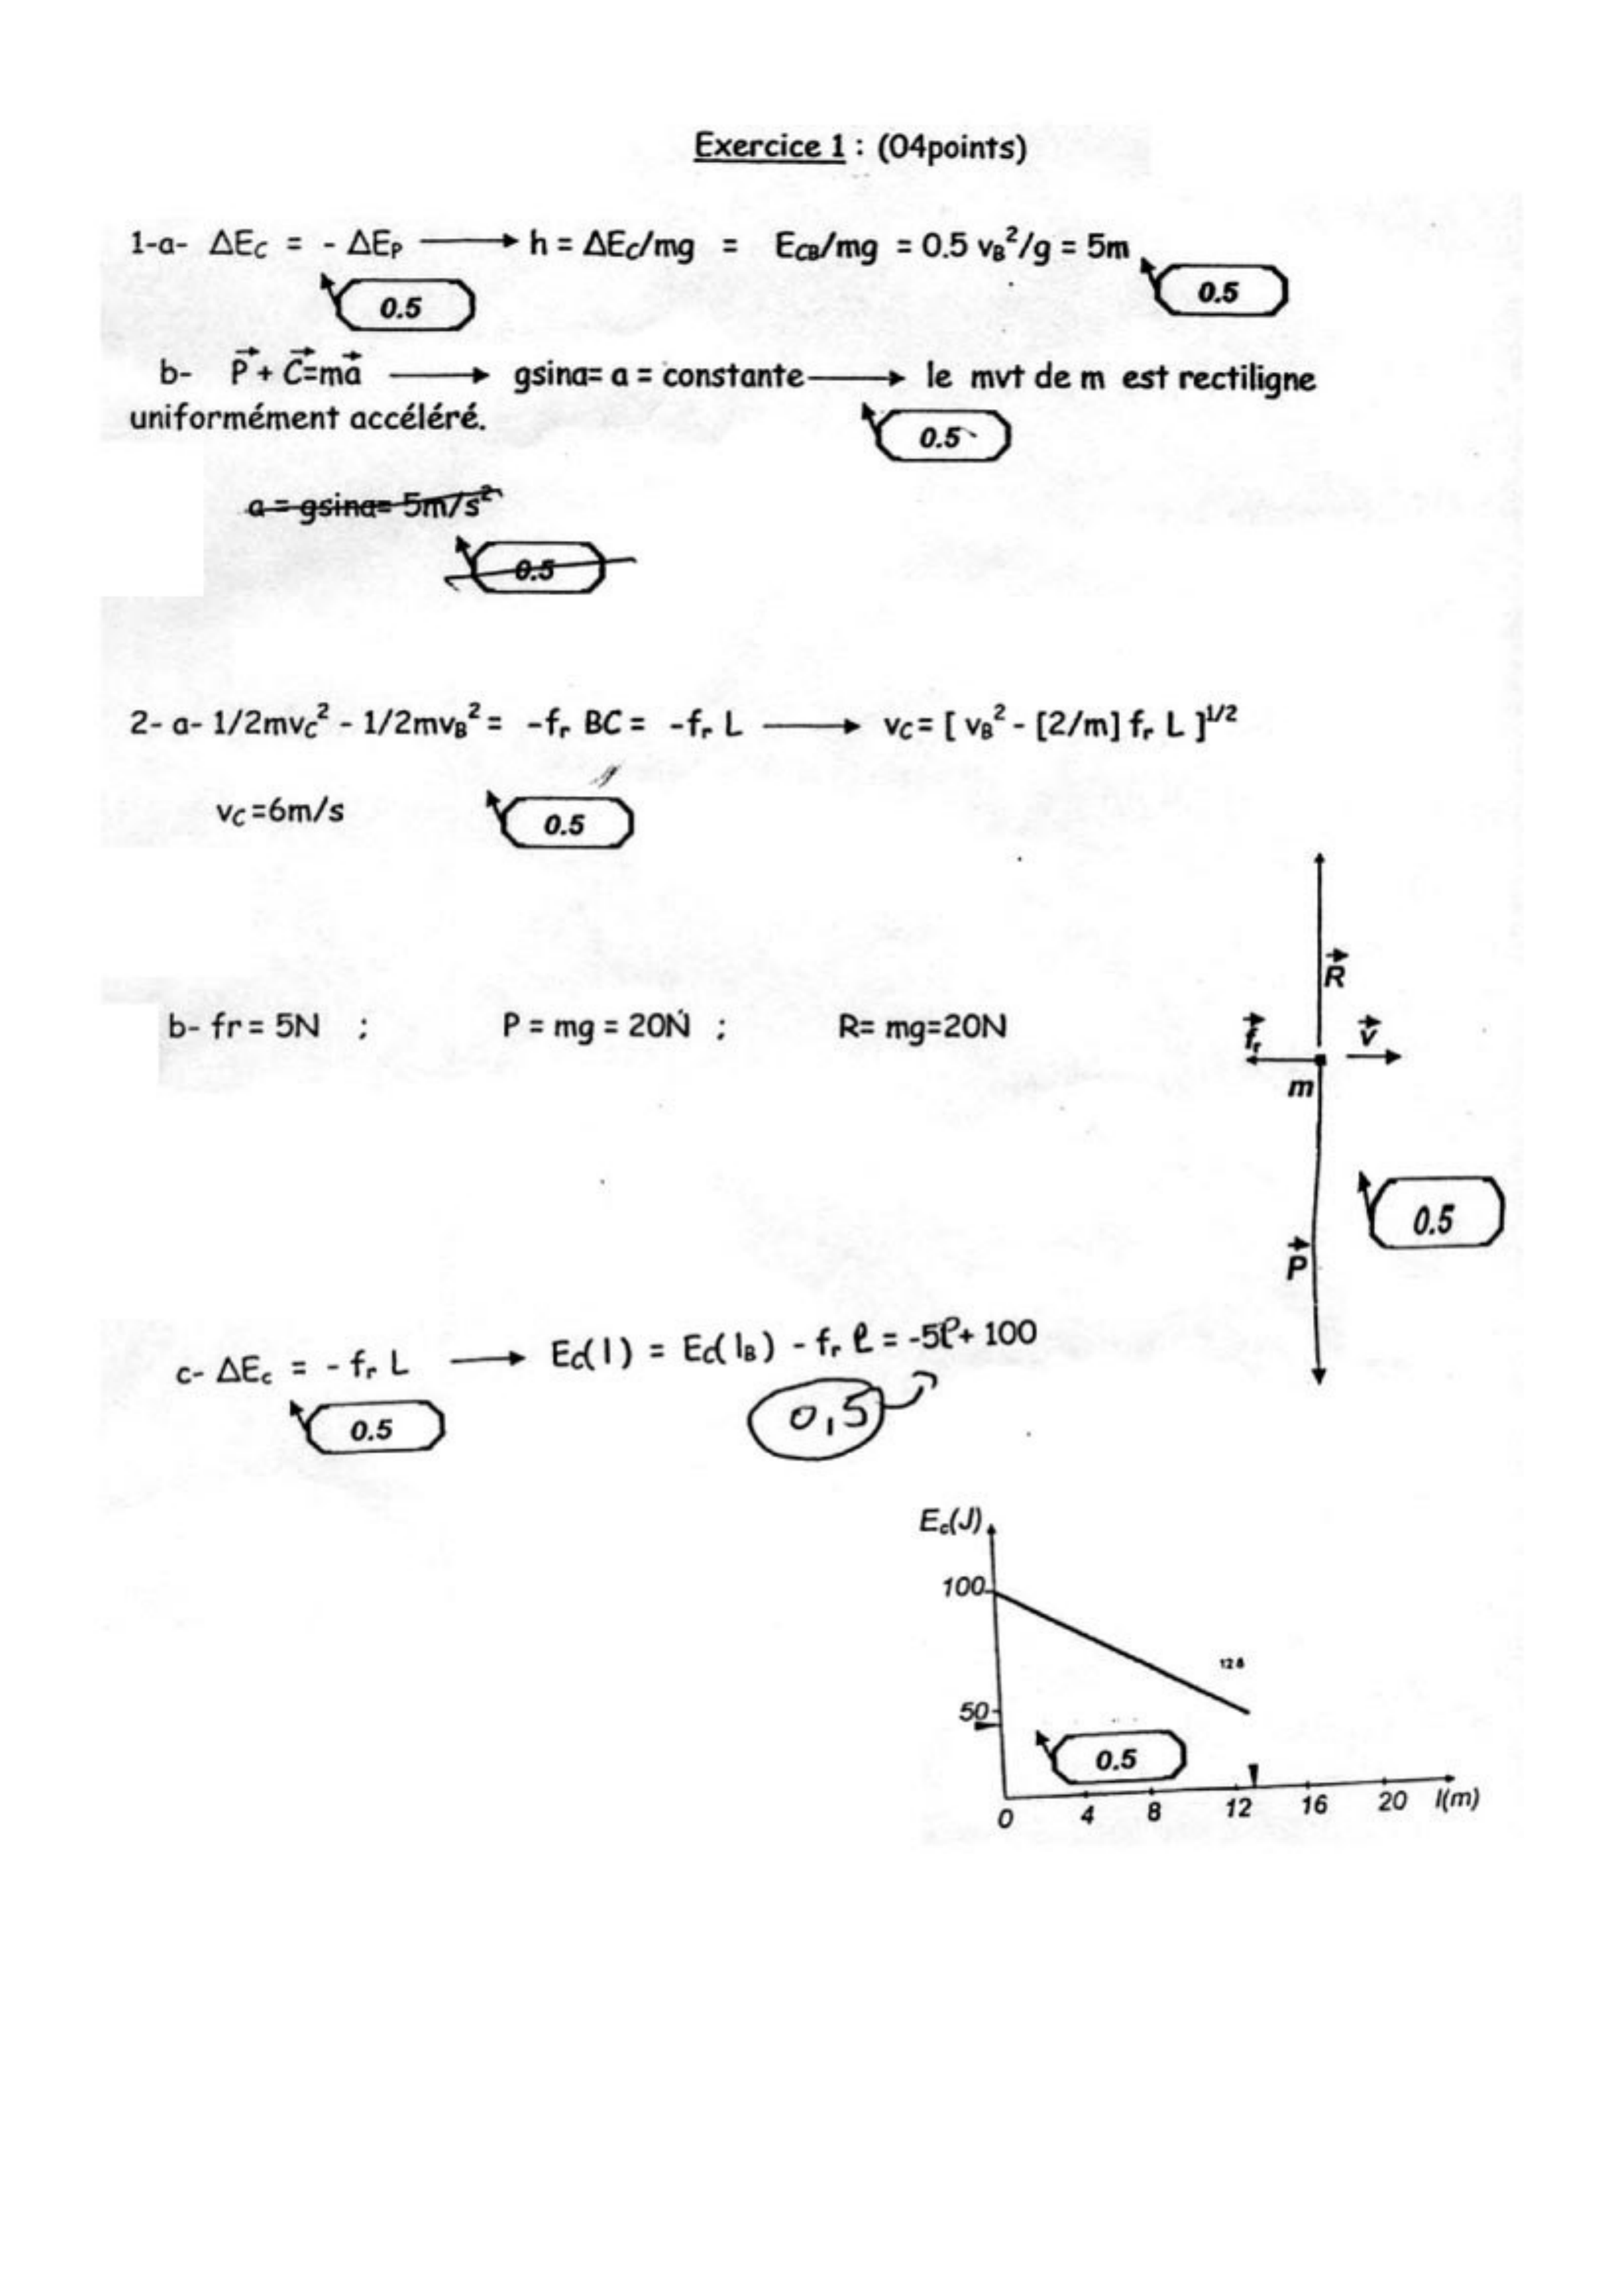 Exercice 1 : (04points)
1-a- ΔEc = - ΔEp ⟶ h = ΔEc/mg = ECB/mg = 0.5 vB²/g = 5m
0.5
0.5
b- P⃗ + C⃗=ma⃗ ⟶ gsina= a = constante ⟶ le mvt de m est rectiligne
uniformément accéléré.
0.5
a = gsina= 5m/s²
0.5
2- a- 1/2mvc² - 1/2mvB² = -fr BC = -fr L ⟶ vc = [ vB² - [2/m] fr L ]^1/2
vc =6m/s
0.5
R⃗
b- fr = 5N ; P = mg = 20N ; R= mg=20N
f⃗r
v⃗
m
0.5
P⃗
c- ΔEc = - fr L ⟶ Ec( l ) = Ec( lB ) - fr ℓ = -5ℓ+ 100
0.5
0,5
Ec(J)
100
50
0.5
0 4 8 12 16 20 l(m)